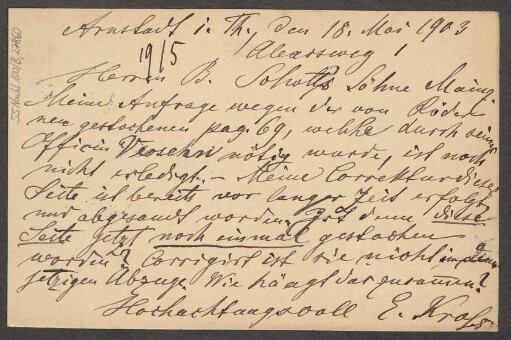 Arnstadt i. Th., den 18. Mai 1903
Alexisweg 1
19/5
Herren B. Schott's Söhne Mainz
Meine Anfrage wegen der von Röder
neu gestochenen pag. 69, welche durch seiner
Officin Versehn nötig wurde, ist noch
nicht erledigt. – Meine Correktur dieser
Seite ist bereits vor langer Zeit erfolgt
und abgesandt worden. Ist denn diese
Seite jetzt noch einmal gestochen
worden? Corrigirt ist sie nicht in dem
jetzigen Abzuge. Wie hängt das zusammen?
Hochachtungsvoll E.